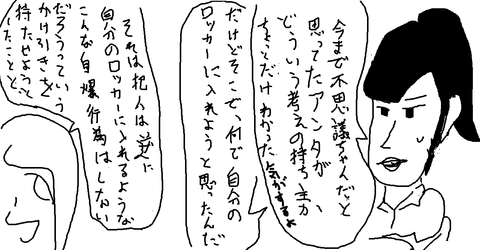 今まで不思議ちゃんだと
思ってたアンタが
どういう考えの持ち主か
ちょっとだけわかった気がするよ
だけどそこで、何で自分の
ロッカーに入れようと思ったんだ
それは犯人は逆に
自分のロッカーに入れるような
こんな自爆行為はしない
だろうっていう
かけ引きを
持たせようと
したことと